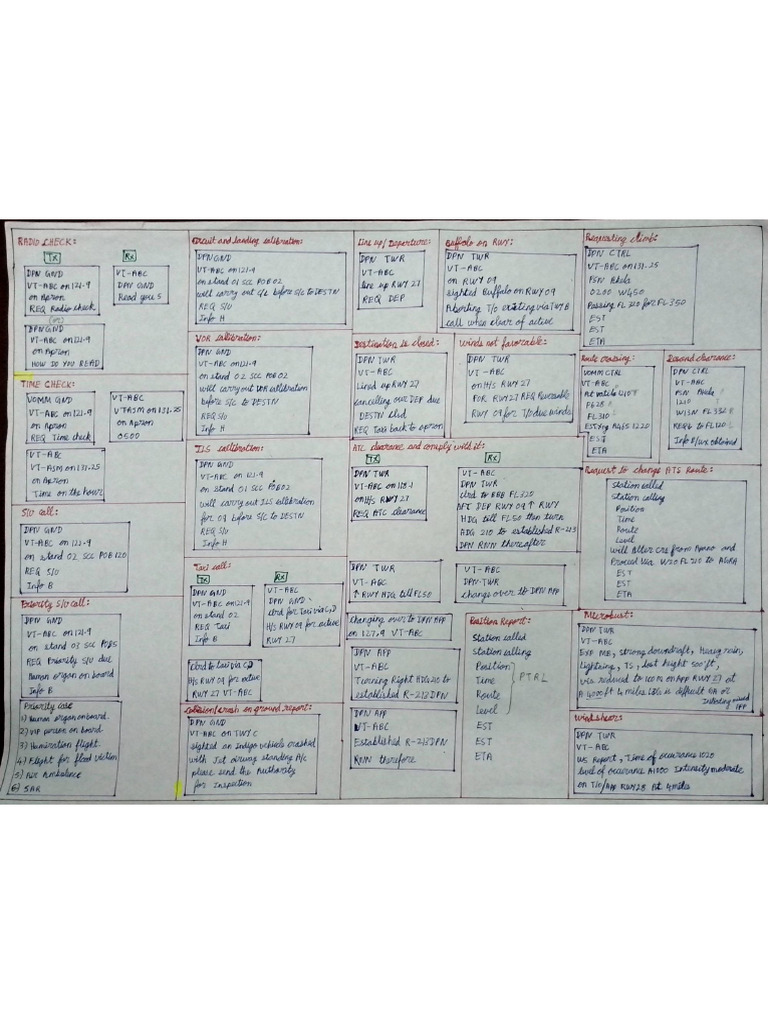 RADIO CHECK:
TX
RX
DPN GND
VT-ABC on 121.9
on Apron
REQ Radio check
(or)
DPN GND
VT-ABC on 121.9
on Apron
HOW DO YOU READ
VT-ABC
DPN GND
Read you 5
TIME CHECK:
VOMM GND
VT-ABC on 121.9
on Apron
REQ Time check
VT-ABC
VT-ASM on 131.25
on Apron
Time on the hour
VT-ABC
VTASM on 131.25
on Apron
0500
S/U call:
DPN GND
VT-ABC on 121.9
on stand 02 SCC POB 120
REQ S/U
Info B
Priority S/U call:
DPN GND
VT-ABC on 121.9
on stand 03 SCC POB5
REQ Priority S/U due
Human organ on board
Info B
Priority case
1) Human organ onboard.
2) VIP person on board
3) Humiration flight.
4) Flight for flood victim
5) Air Ambulance
6) SAR
Circuit and landing calibration:
DPN GND
VT-ABC on 121.9
on stand 01 SCC POB 02
will carry out C/L before S/C to DESTN
REQ S/U
Info H
VOR calibration:
DPN GND
VT-ABC on 121.9
on stand 02 SCC POB 02
will carry out VOR calibration
before S/C to DESTN
REQ S/U
Info H
ILS calibration:
DPN GND
VT-ABC on 121.9
on stand 01 SCC POB 02
will carry out ILS calibration
for 09 before S/C to DESTN
REQ S/U
Info H
Taxi call:
TX
RX
DPN GND
VT-ABC on 121.9
on stand 02
REQ Taxi
Info B
VT-ABC
DPN GND
clrd for Taxi via C,D
H/S RWY 09 for active
RWY 27
clrd to taxi via C,D
H/S RWY 09 for active
RWY 27 VT-ABC
Collision/crash on ground report:
DPN GND
VT-ABC on TWY C
sighted an Indigo vehicle crashed
with Jet airway standing A/C
please send the Authority
for Inspection
Line up/Departure:
DPN TWR
VT-ABC
line up RWY 27
REQ DEP
Buffalo on RWY:
DPN TWR
VT-ABC
on RWY 09
sighted Buffalo on RWY 09
Aborting T/O exiting via TWY B
call when clear of active
Destination is closed:
DPN TWR
VT-ABC
Lined up RWY 27
cancelling our DEP due
DESTN clsd
REQ Taxi back to apron
Winds not favorable:
DPN TWR
VT-ABC
on H/S RWY 27
FOR RWY 27 REQ Reversible
RWY 09 for T/O due winds
ATC clearance and comply with it:
TX
RX
DPN TWR
VT-ABC on 118.1
on H/S RWY 27
REQ ATC clearance
VT-ABC
DPN TWR
clrd to BBB FL320
AFT DEP RWY 09 ↑ RWY
HDG till FL50 then turn
HDG 210 to established R-213
DPN RNN thereafter
DPN TWR
VT-ABC
↑ RWY HDG till FL50
VT-ABC
DPN TWR
change over to DPN APP
Changing over to DPN APP
on 127.9 VT-ABC
DPN APP
VT-ABC
Turning Right HDG 210 to
established R-213 DPN
DPN APP
VT-ABC
Established R-213 DPN
RNN therefore
Position Report:
Station called
Station calling
Position
Time
Route
Level
PTRL
EST
EST
ETA
Requesting climb:
DPN CTRL
VT-ABC on 131.25
PSN Bhdle
0200 W450
Passing FL 310 for FL 350
EST
EST
ETA
Route crossing:
VOMM CTRL
VT-ABC
FL310
EST
ETA
Descend clearance:
DPN CTRL
VT-ABC
1210
Info B/WX obtained
Request to change ATS Route:
Station called
Station calling
Position
Time
Route
Level
Proceed via W20 FL310 to AGRA
EST
EST
ETA
Microburst:
DPN TWR
VT-ABC
EXP MB, strong downdraft, Heavy rain,
lightning, TS, lost height 500 ft,
vis reduced to 1000m on App RWY 27 at
A 4000ft 4 miles LDG is difficult GA or
Initiating missed
APP
Windshear:
DPN TWR
VT-ABC
WS Report, Time of occurance 1020
level of occurance A1000 Intensity moderate
on T/O/App RWY 28 At 4 miles